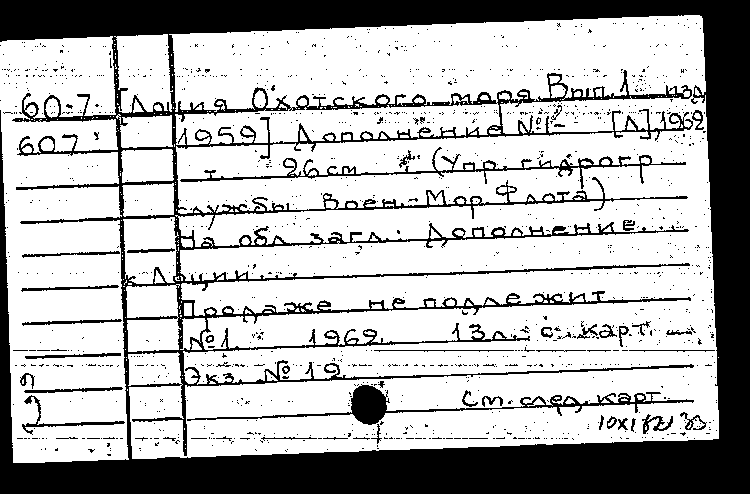 60-7 [Лоция Охотского моря Вып.1 изд
607 1959] Дополнение №1- [Л.], 1962
т. 26см. (Упр. гидрогр
службы Воен.-Мор. Флота)
На обл загл.: Дополнение...
к Лоции...
Продаже не подлежит
№1 1962. 13л. с карт.
Экз. №19
См. след. карт.